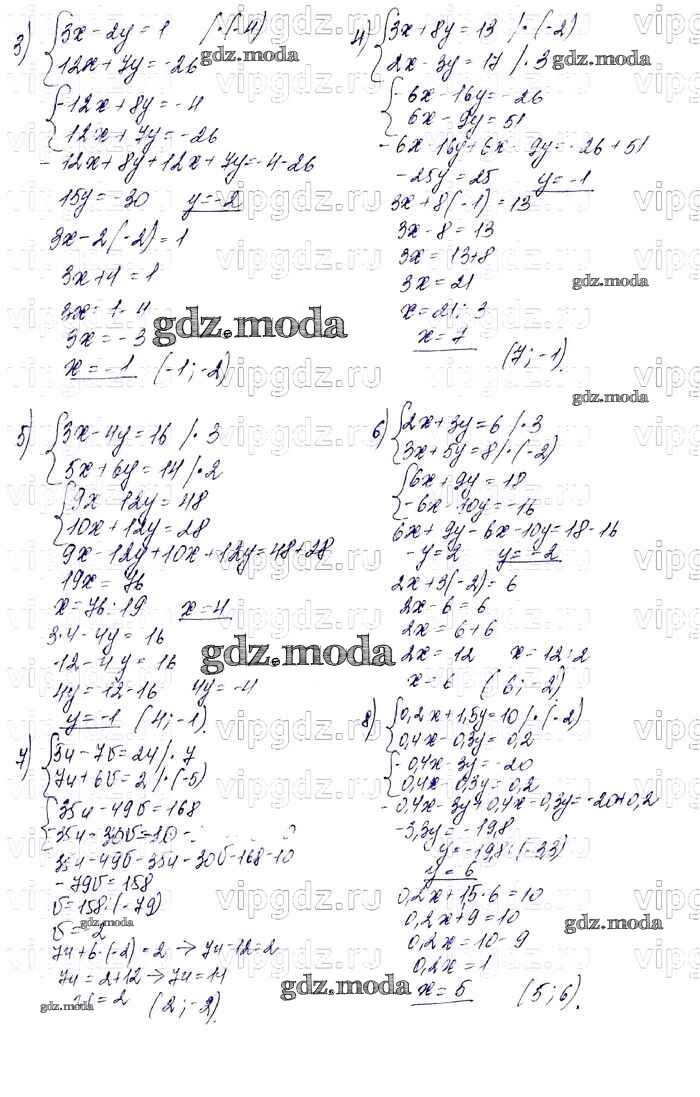 3) {3x - 2y = 1 |·(-4)
{12x + 7y = -26
{-12x + 8y = -4
{12x + 7y = -26
-12x + 8y + 12x + 7y = -4 - 26
15y = -30 y = -2
3x - 2(-2) = 1
3x + 4 = 1
3x = 1 - 4
3x = -3
x = -1 (-1; -2)
4) {3x + 8y = 13 |·(-2)
{2x - 3y = 17 |·3
{-6x - 16y = -26
{6x - 9y = 51
-6x - 16y + 6x - 9y = -26 + 51
-25y = 25 y = -1
3x + 8(-1) = 13
3x - 8 = 13
3x = 13 + 8
3x = 21
x = 21 : 3
x = 7
(7; -1).
5) {3x - 4y = 16 |·3
{5x + 6y = 14 |·2
{9x - 12y = 48
{10x + 12y = 28
9x - 12y + 10x + 12y = 48 + 28
19x = 76
x = 76 : 19 x = 4
3·4 - 4y = 16
12 - 4y = 16
4y = 12 - 16 4y = -4
y = -1 (4; -1).
6) {2x + 3y = 6 |·3
{3x + 5y = 8 |·(-2)
{6x + 9y = 18
{-6x - 10y = -16
6x + 9y - 6x - 10y = 18 - 16
-y = 2 y = -2
2x + 3(-2) = 6
2x - 6 = 6
2x = 6 + 6
2x = 12 x = 12 : 2
x = 6 (6; -2).
7) {5u - 7v = 24 |·7
{7u + 6v = 2 |·(-5)
{35u - 49v = 168
{-35u - 30v = -10
35u - 49v - 35u - 30v = 168 - 10
-79v = 158
v = 158 : (-79)
v = -2
7u + 6·(-2) = 2 → 7u - 12 = 2
7u = 2 + 12 → 7u = 14
u = 2 (2; -2).
8) {0,2x + 1,5y = 10 |·(-2)
{0,4x - 0,3y = 0,2
{-0,4x - 3y = -20
{0,4x - 0,3y = 0,2
-0,4x - 3y + 0,4x - 0,3y = -20 + 0,2
-3,3y = -19,8
y = -19,8 : (-3,3)
y = 6
0,2x + 1,5·6 = 10
0,2x + 9 = 10
0,2x = 10 - 9
0,2x = 1
x = 5 (5; 6).
gdz.moda
vipgdz.ru